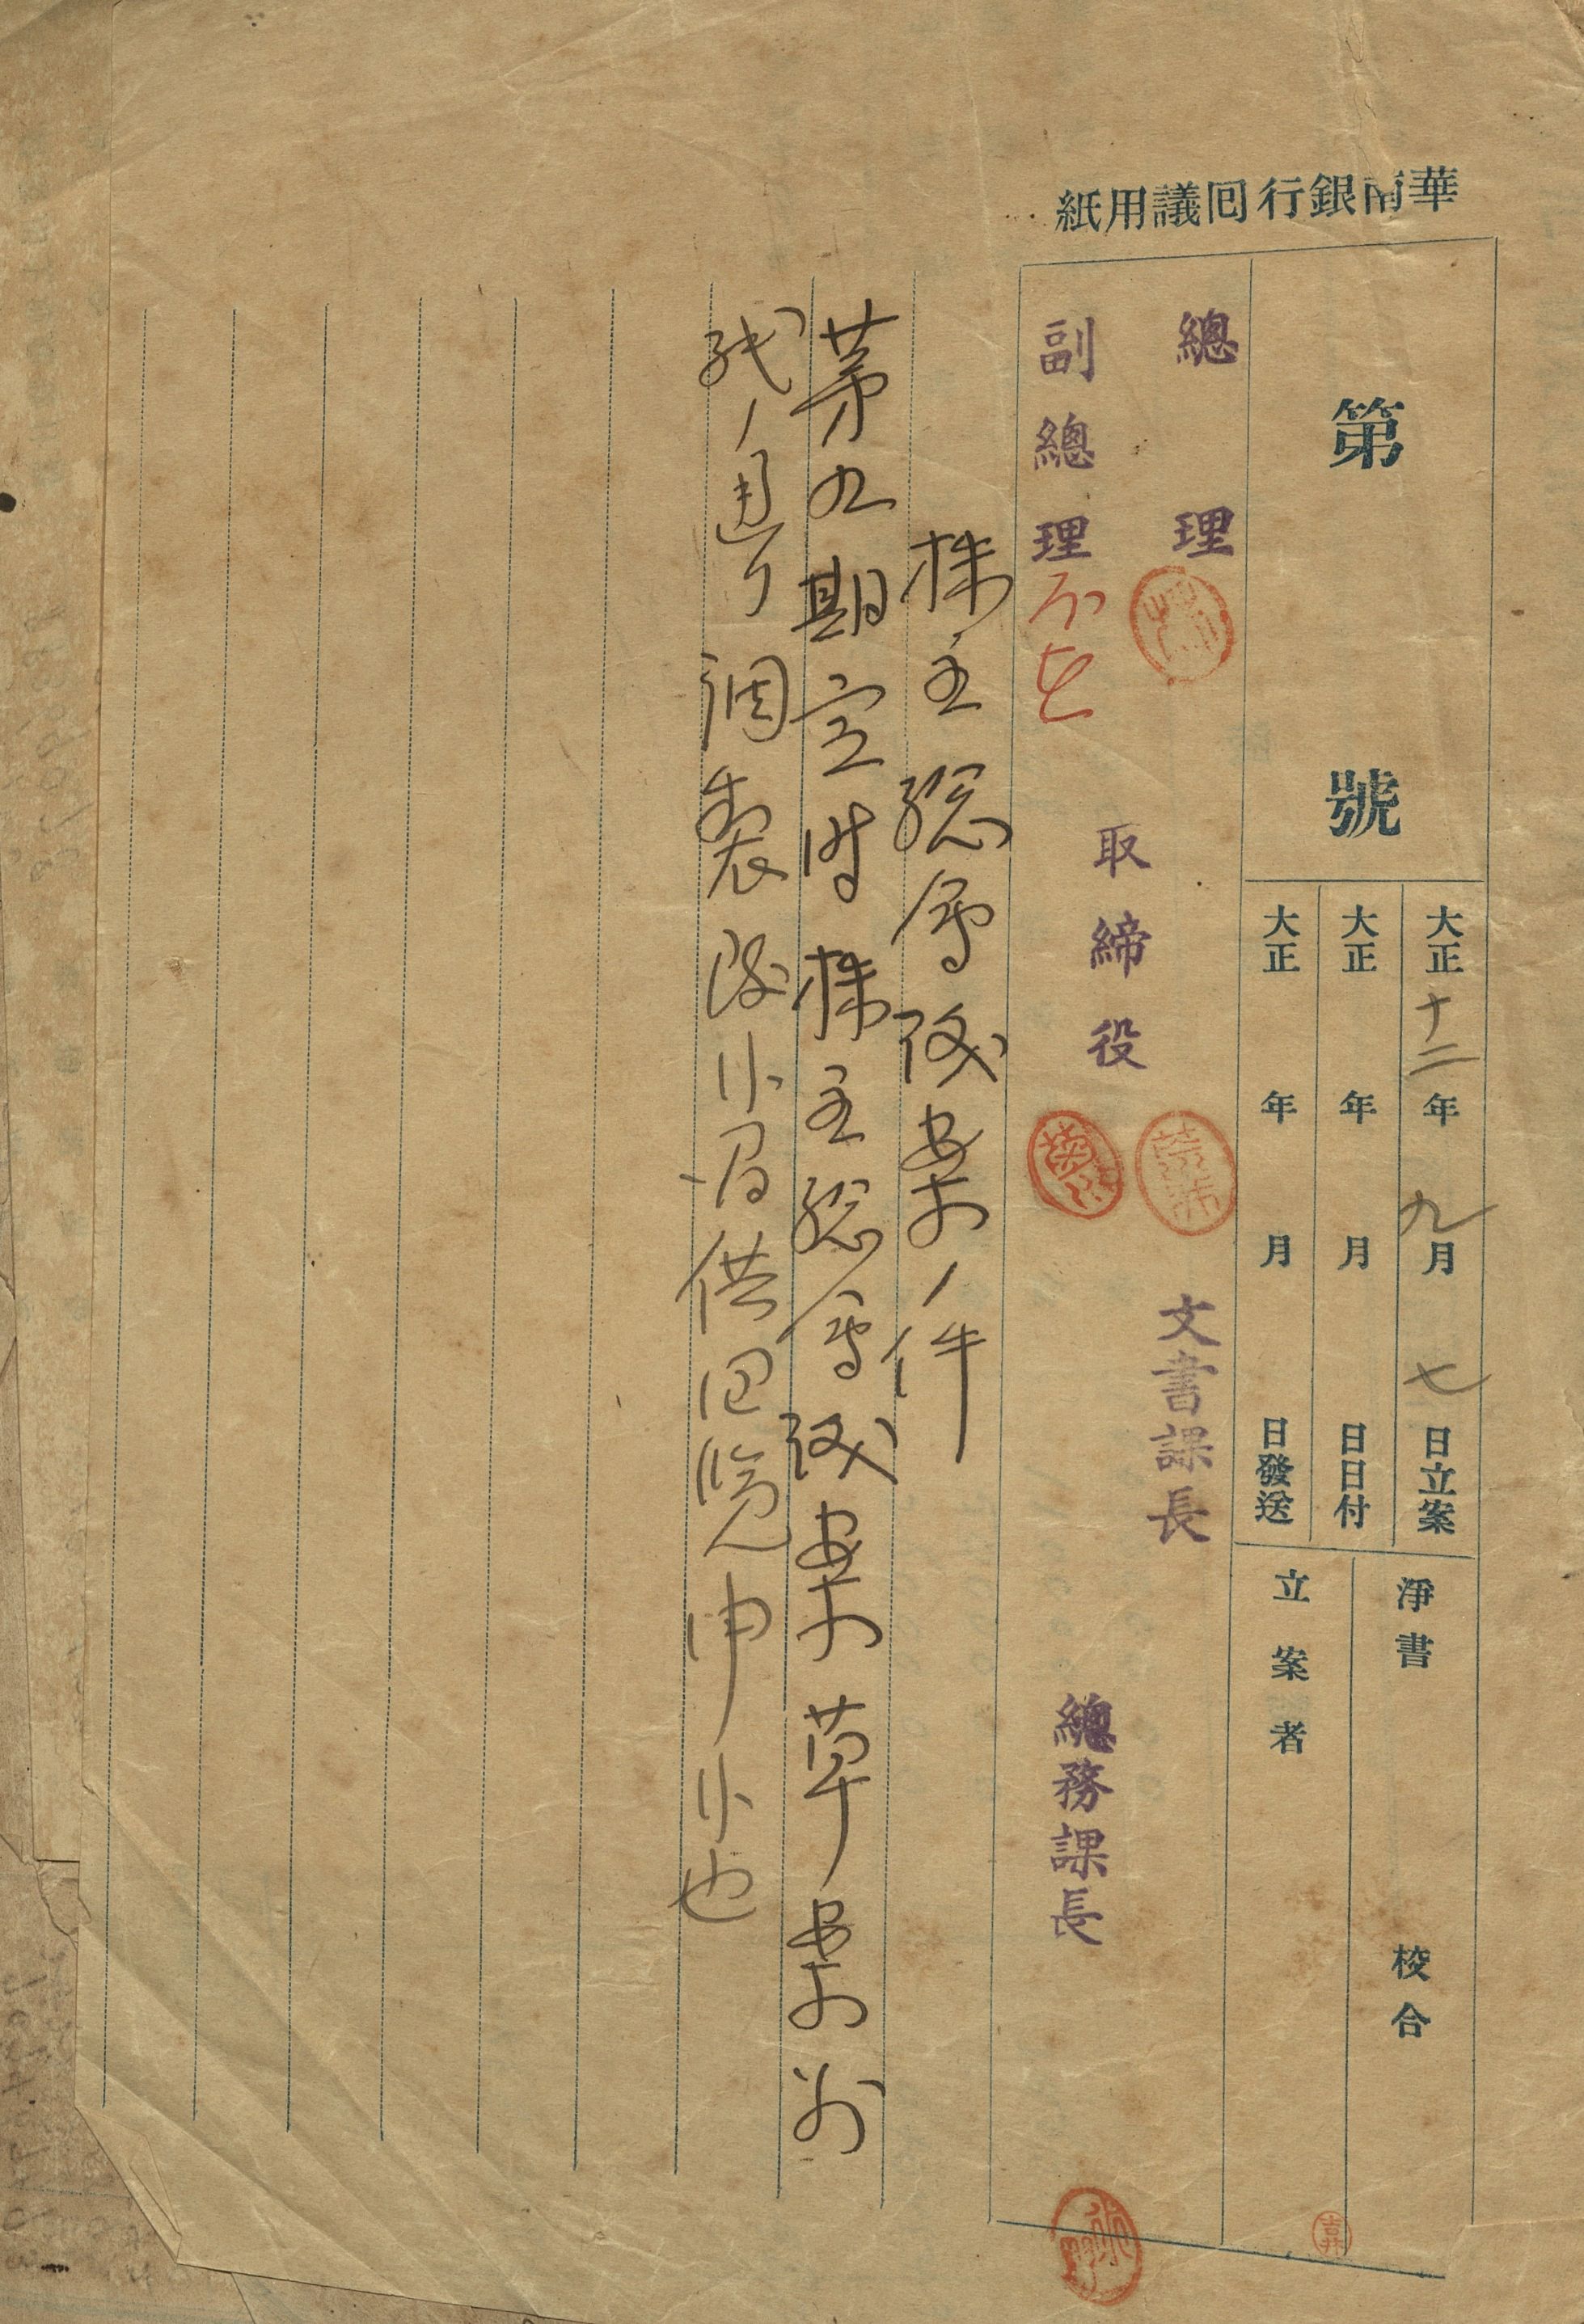 華南銀行回議用紙
第 號
大正十二年九月七日立案
大正 年 月 日日付
大正 年 月 日發送
淨書 校合
立案者
總理
副總理 不在
取締役
文書課長
總務課長
株主総会議案ノ件
第九期定時株主総会議案草案別
紙ノ通リ調製致候ニ付供回覧申候也